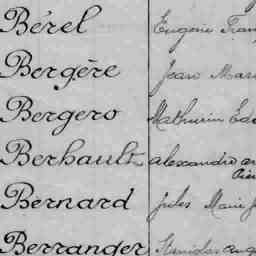 Bérel Eugène Fran
Bergère Jean Mari
Bergero Mathurin Edo
Berhault Alexandre
Bernard Jules Marie J
Berranger Stanislas Aug